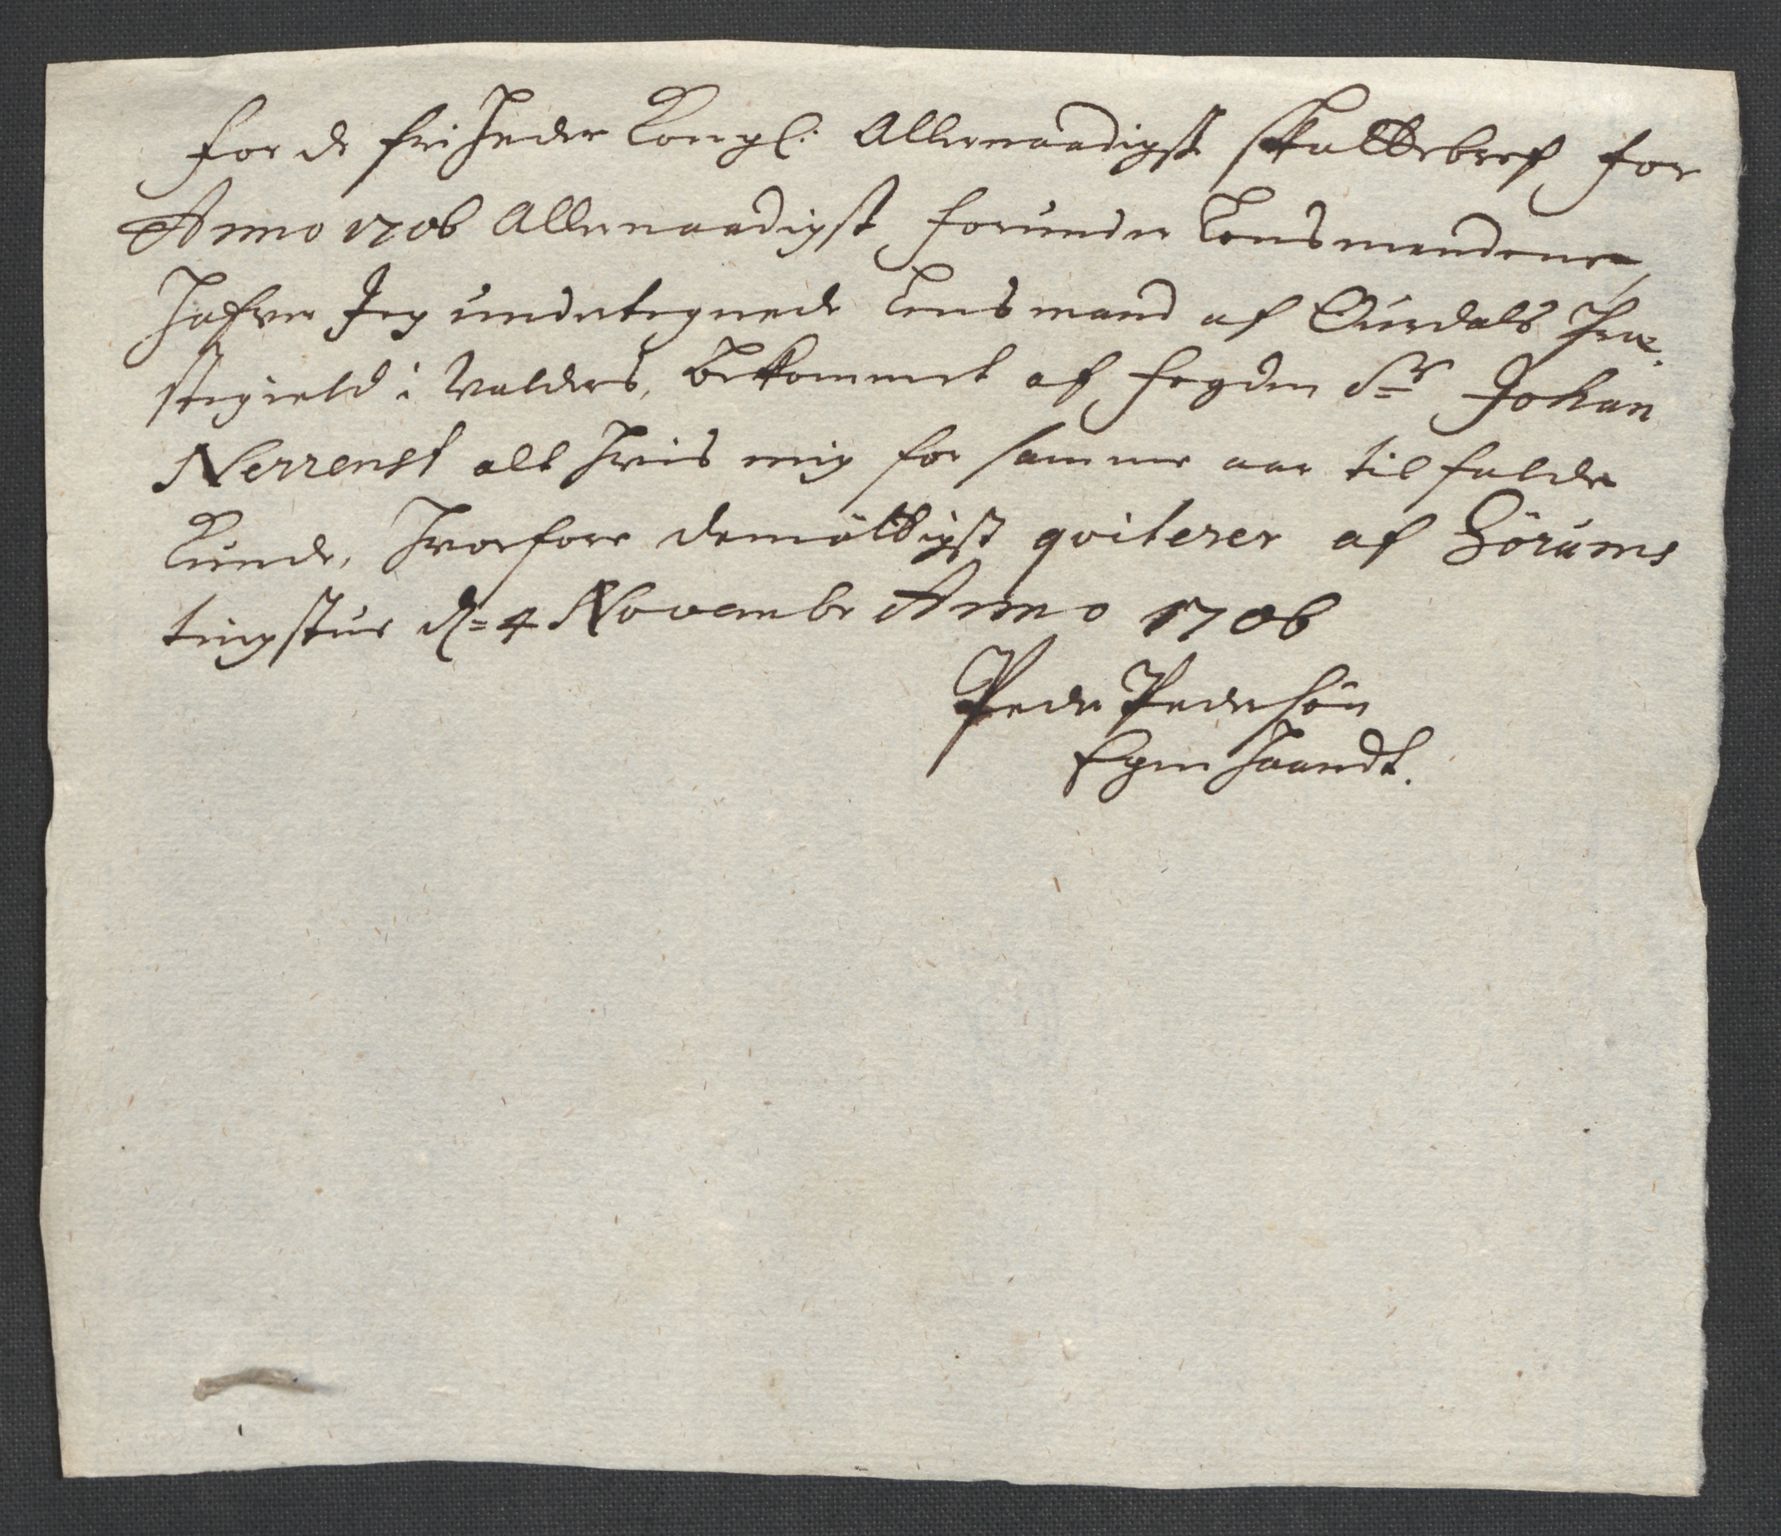 For de friheder Kongl: Allernaadigste skattebref for
Anno 1706 Allernaadigst forunder Lensmendene,
hafver Jeg undertegnede Lensmand af Ourdals Præ-
stegield i Valders, bekommet af fogden Sr Johan
Nerrenst alt hvis mig for samme aar tilfalde
kunde, hvorfore demøttigst qviterer af Sørums
tingstue d= 4 Novembr Anno 1706
Peder Pedersøn
Egen haandt.